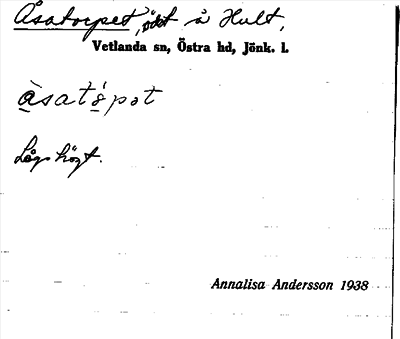 Åsatorpet, öde å Hult,
Vetlanda sn, Östra hd, Jönk. l.
àsatópət
Lågt högt.
Annalisa Andersson 1938